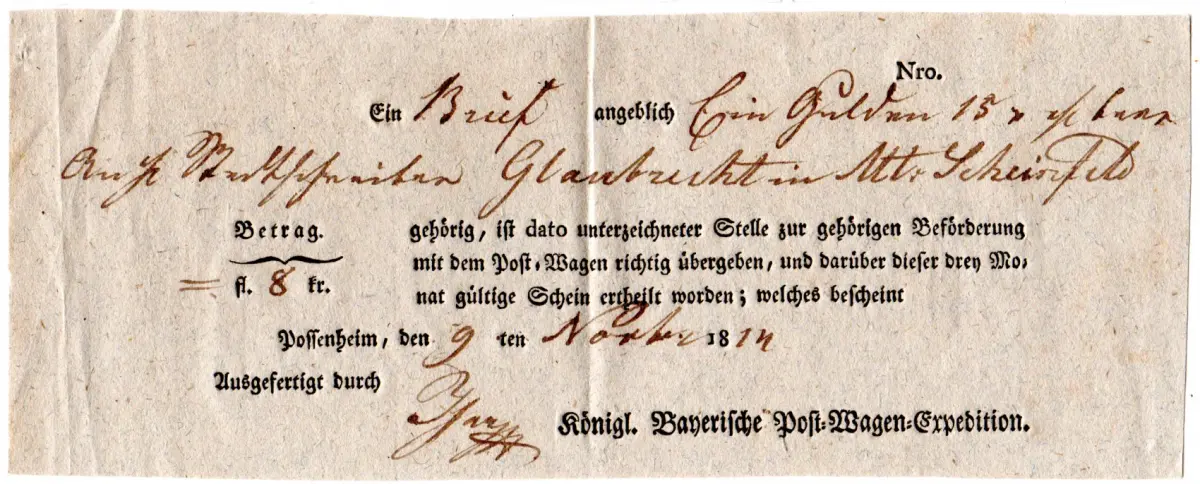 Nro.
Ein Brief angeblich Ein Gulden 15 x
An H Stadtschreiber Glaubrecht in Mkt. Scheinfeld
Betrag. gehörig, ist dato unterzeichneter Stelle zur gehörigen Beförderung
mit dem Post-Wagen richtig übergeben, und darüber dieser drey Mo-
= fl. 8 kr. nat gültige Schein ertheilt worden; welches bescheint
Possenheim, den 9 ten Novbr 1814
Ausgefertigt durch
Königl. Bayerische Post-Wagen-Expedition.